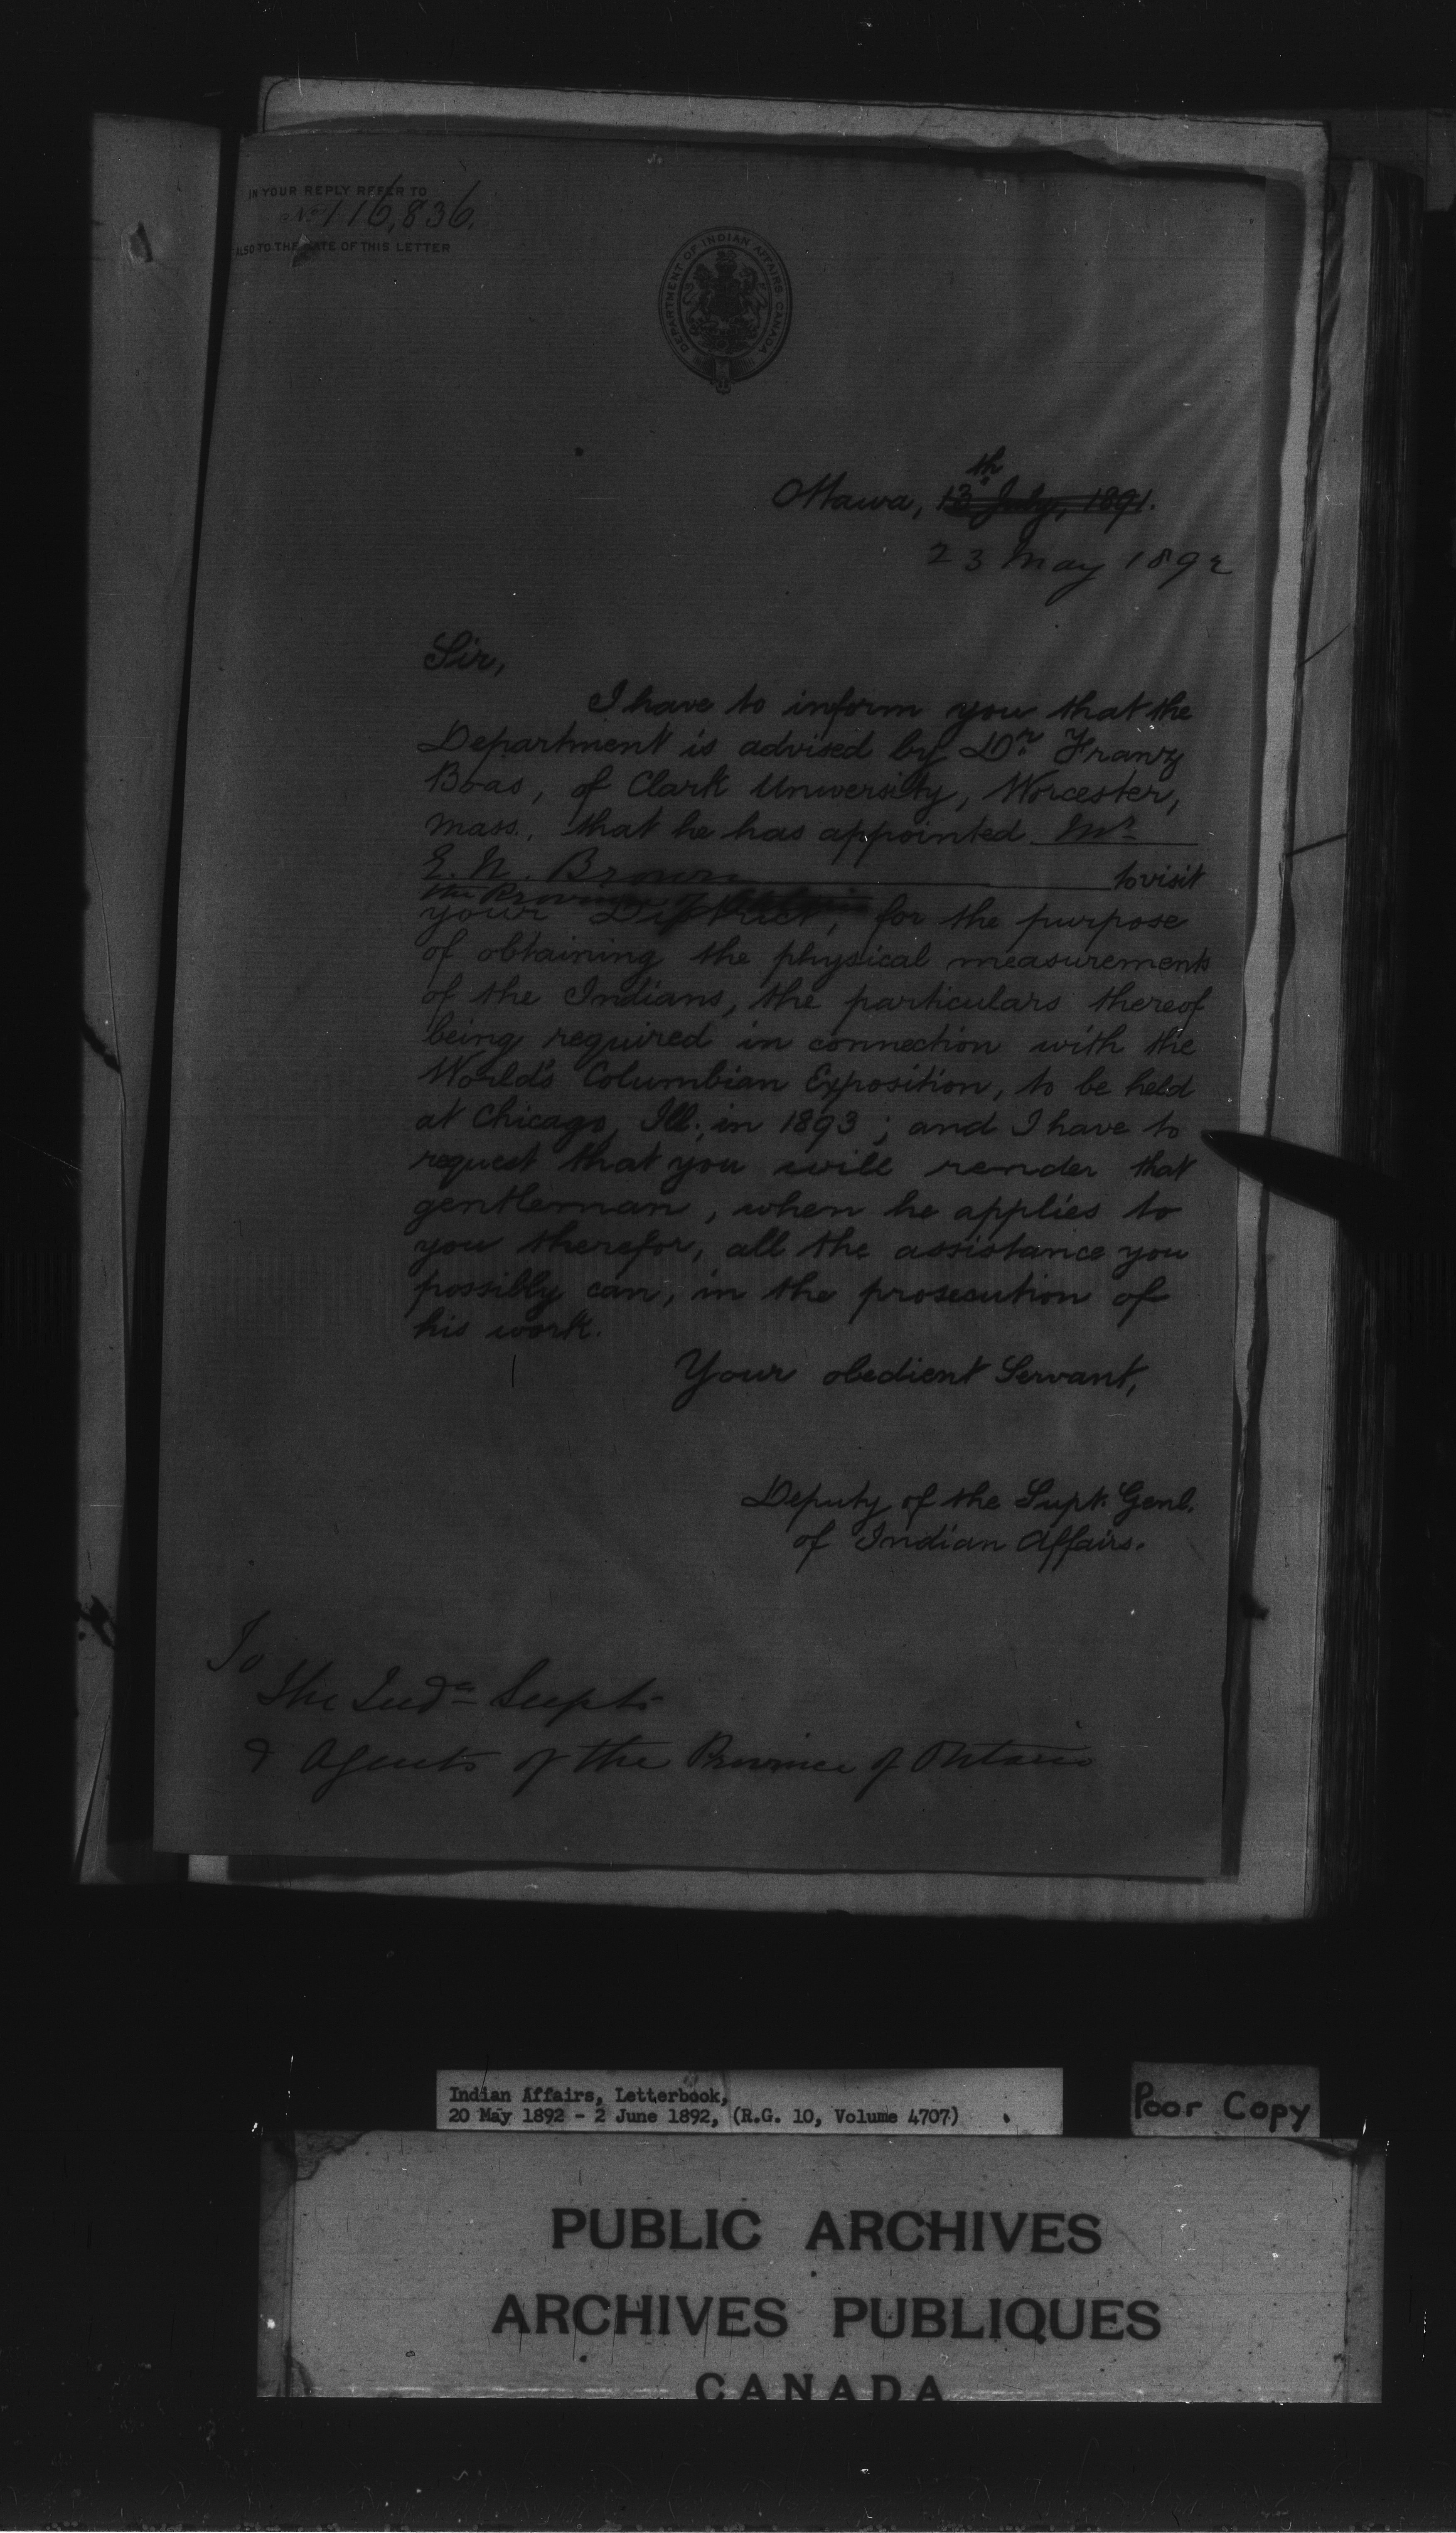 IN YOUR REPLY REFER TO
No 116,836.
ALSO TO THE DATE OF THIS LETTER
DEPARTMENT OF INDIAN AFFAIRS CANADA
Ottawa, 13th July, 1891.
23 May 1892
Sir,
I have to inform you that the
Department is advised by Dr. Franz
Boas, of Clark University, Worcester,
Mass., that he has appointed Mr
E. N. Brown to visit
the Province of
your District, for the purpose
of obtaining the physical measurements
of the Indians, the particulars thereof
being required in connection with the
World's Columbian Exposition, to be held
at Chicago, Ill., in 1893; and I have to
request that you will render that
gentleman, when he applies to
you therefor, all the assistance you
possibly can, in the prosecution of
his work.
Your obedient Servant,
Deputy of the Supt. Genl.
of Indian Affairs.
To
The Indn Supts
& Agents of the Province of Ontario
Indian Affairs, Letterbook,
20 May 1892 - 2 June 1892, (R.G. 10, Volume 4707)
Poor Copy
PUBLIC ARCHIVES
ARCHIVES PUBLIQUES
CANADA